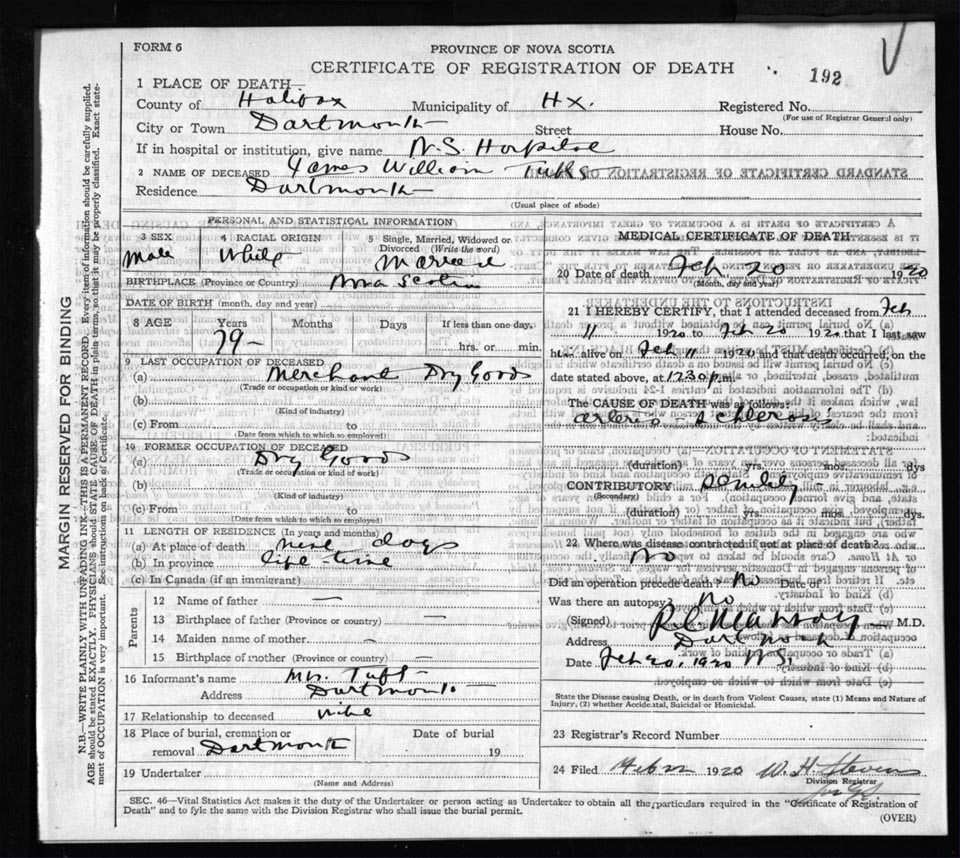 FORM 6
PROVINCE OF NOVA SCOTIA
CERTIFICATE OF REGISTRATION OF DEATH
192
1 PLACE OF DEATH—
County of Halifax Municipality of Hx. Registered No.
(For use of Registrar General only)
City or Town Dartmouth Street House No.
If in hospital or institution, give name N.S. Hospital
2 NAME OF DECEASED James William Tufts
Residence Dartmouth
(Usual place of abode)
MARGIN RESERVED FOR BINDING
N.B.—WRITE PLAINLY WITH UNFADING INK—THIS IS A PERMANENT RECORD. Every item of information should be carefully supplied.
AGE should be stated EXACTLY. PHYSICIANS should STATE CAUSE OF DEATH in plain terms, so that it may be properly classified. Exact state-
ment of OCCUPATION is very important. See instructions on back of Certificate.
PERSONAL AND STATISTICAL INFORMATION
3 SEX 4 RACIAL ORIGIN 5 Single, Married, Widowed or Divorced (Write the word)
Male White Married
BIRTHPLACE (Province or Country) Nova Scotia
DATE OF BIRTH (month, day and year)
8 AGE Years Months Days If less than one day,
79 — hrs. or min.
9 LAST OCCUPATION OF DECEASED
(a) Merchant Dry Goods
(Trade or occupation or kind of work)
(b)
(Kind of industry)
(c) From to
(Date from which to which so employed)
10 FORMER OCCUPATION OF DECEASED
(a) Dry Goods
(Trade or occupation or kind of work)
(b)
(Kind of industry)
(c) From to
(Date from which to which so employed)
11 LENGTH OF RESIDENCE (In years and months)
(a) At place of death nine days
(b) In province life-time
(c) In Canada (if an immigrant)
Parents
12 Name of father —
13 Birthplace of father (Province or country) —
14 Maiden name of mother —
15 Birthplace of mother (Province or country) —
16 Informant's name Mrs. Tuft
Address Dartmouth
17 Relationship to deceased wife
18 Place of burial, cremation or removal Dartmouth Date of burial 19
19 Undertaker
(Name and Address)
MEDICAL CERTIFICATE OF DEATH
20 Date of death Feb. 20 1920
(Month, day and year)
21 I HEREBY CERTIFY, that I attended deceased from Feb
11 1920 to Feb 20 1920 that I last saw
him alive on Feb 11 1920 and that death occurred, on the
date stated above, at 12 30 p.m.
The CAUSE OF DEATH was as follows:
arterio-sclerosis
(duration) yrs. mos. dys
CONTRIBUTORY Senility
(Secondary)
(duration) yrs. mos. dys.
22 Where was disease contracted if not at place of death?
No
Did an operation precede death? No Date of
Was there an autopsy? No
(Signed) M.D.
Address Dartmouth
Date Feb 20, 1920 N.S.
State the Disease causing Death, or in death from Violent Causes, state (1) Means and Nature of
Injury, (2) whether Accidental, Suicidal or Homicidal.
23 Registrar's Record Number
24 Filed 1920 W. H. Stevens
Division Registrar
SEC. 46—Vital Statistics Act makes it the duty of the Undertaker or person acting as Undertaker to obtain all the particulars required in the "Certificate of Registration of
Death" and to fyle the same with the Division Registrar who shall issue the burial permit.
(OVER)